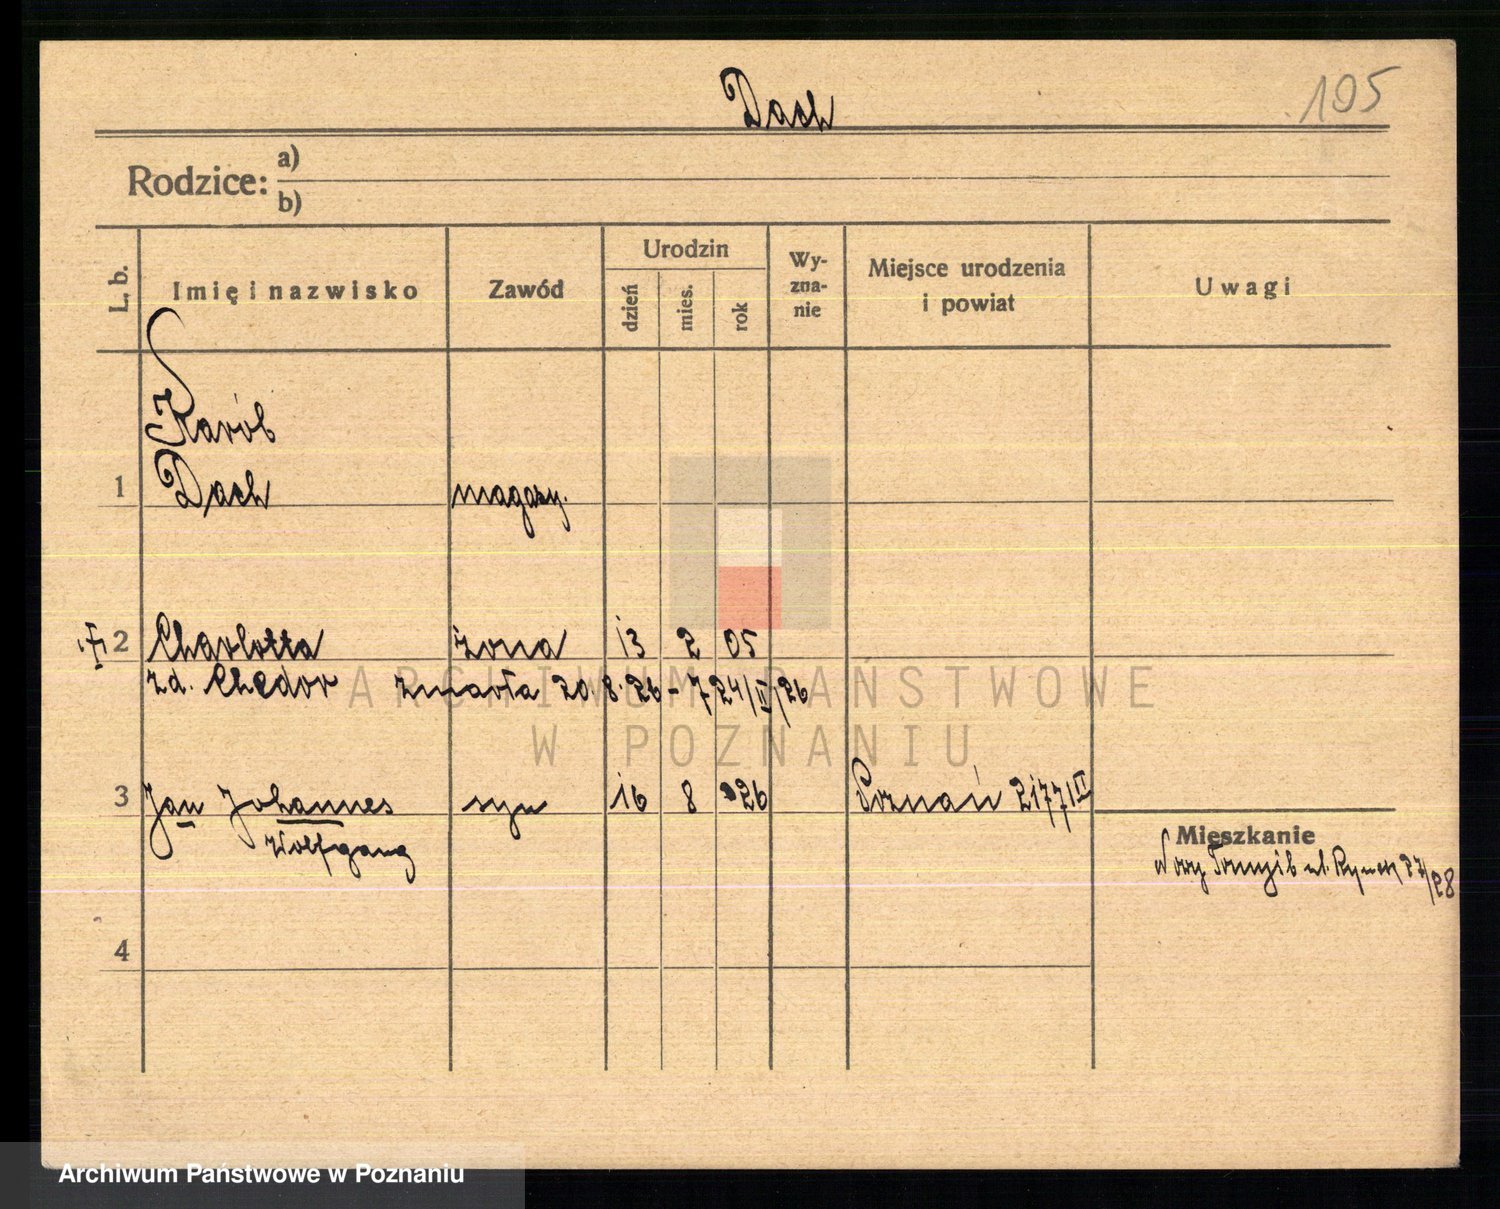 Dach
195
Rodzice: a)
b)
L. b. Imię i nazwisko Zawód Urodzin dzień mies. rok Wy-zna-nie Miejsce urodzenia i powiat Uwagi
Karol
1 Dach magazy.
2 Charlotta żona 13 2 05
zd. Chedor zmarła 20.8.26 - 724/II/26
ARCHIWUM PAŃSTWOWE
W POZNANIU
3 Jan Johannes syn 16 8 26 Poznań 2177/II
Wolfgang
Mieszkanie
Nowy Tomyśl ul. Rynek 27/28
4
Archiwum Państwowe w Poznaniu